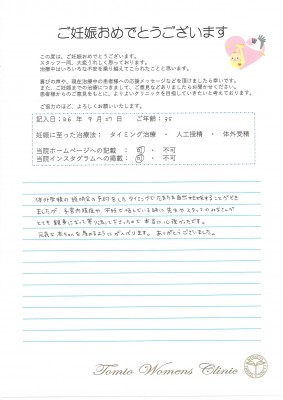 ご妊娠おめでとうございます
この度は、ご妊娠おめでとうございます。
スタッフ一同、大変うれしく思っております。
治療中はいろいろな不安を乗り越えてこられたことと思います。
喜びの声や、現在治療中の患者様への応援メッセージなどを頂けましたら幸いです。
また、妊娠までの治療につきまして、ご意見などありましたらお聞かせください。
患者様からのご意見をもとに、よりよいクリニックを目指していきたいと考えております。
ご協力のほど、よろしくお願いいたします。
記入日：26年9月27日 ご年齢：35
妊娠に至った治療法： タイミング治療 ・ 人工授精 ・ 体外受精
当院ホームページへの記載 ： 可 ・ 不可
当院インスタグラムへの掲載 ： 可 ・ 不可
体外受精の説明会の予約をしたタイミングでたまたま自然妊娠することができ
ましたが、子宮内膜症や、不妊で悩んでいる時に先生やスタッフのみなさんが
とても親身になって寄り添って下さったので本当に心強かったです。
元気な赤ちゃんを産めるようにがんばります。ありがとうございました。
Tomio Womens Clinic